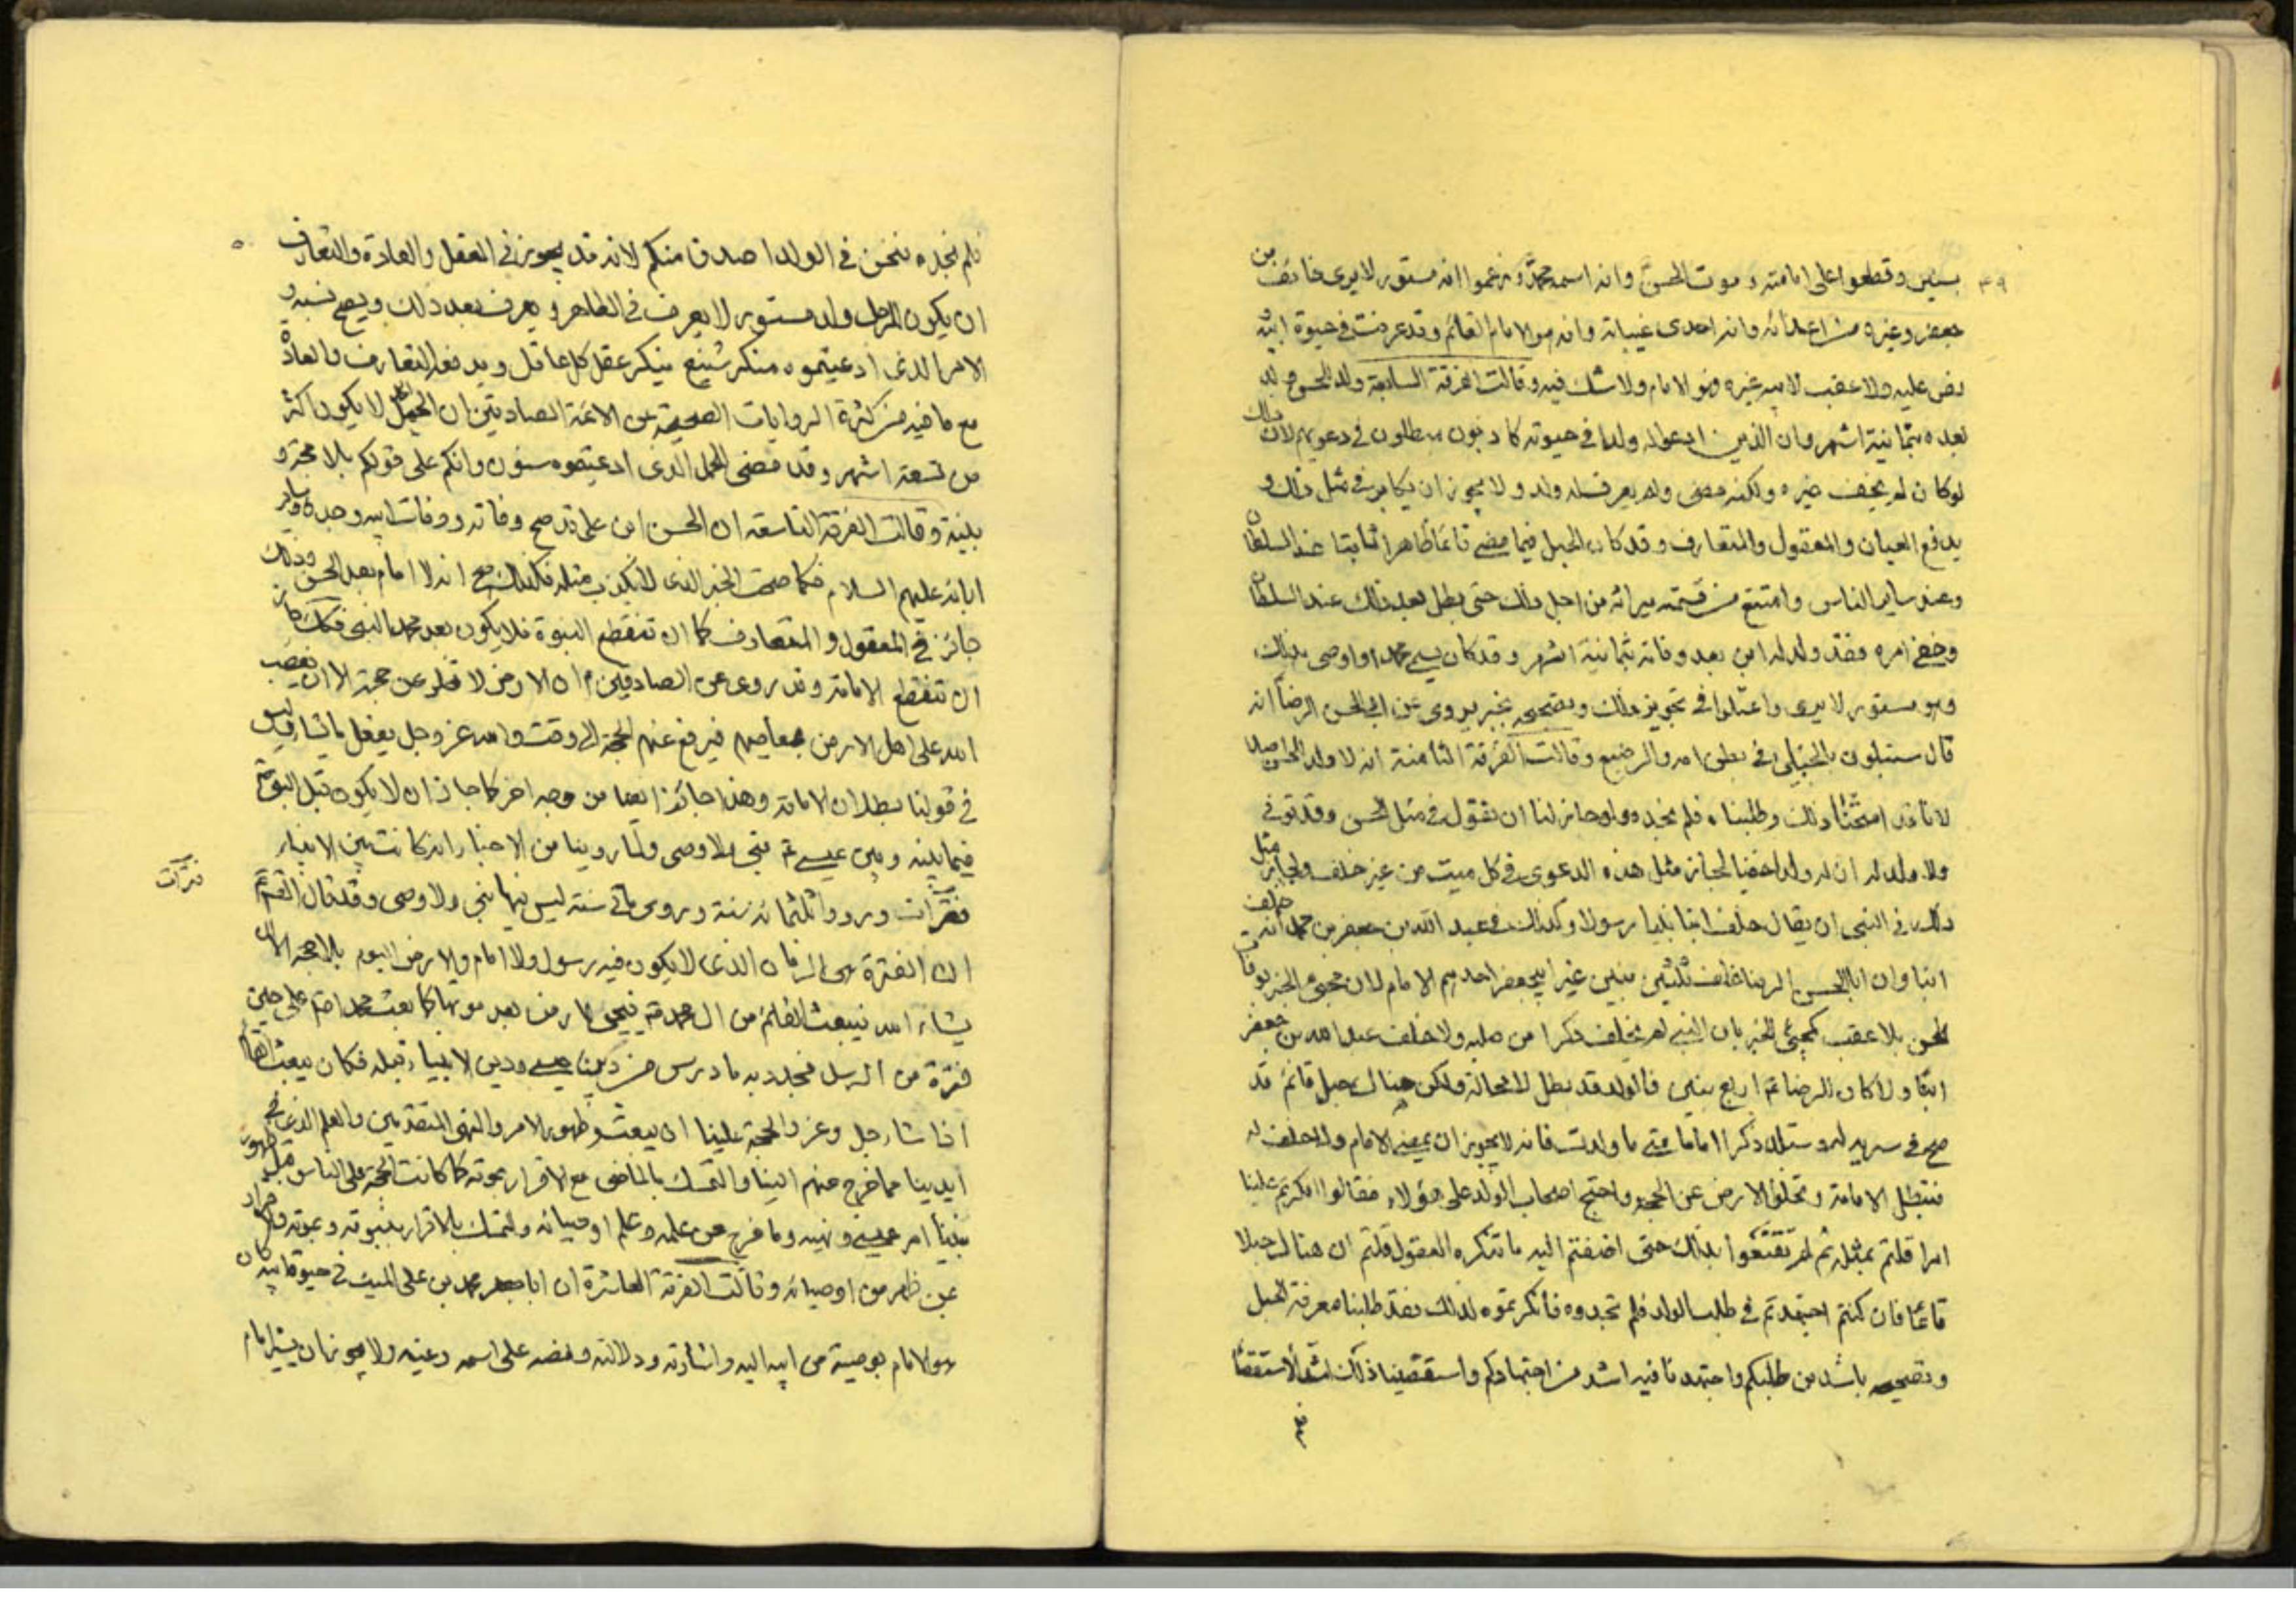 ٤٩
بسنين وقطعوا على امامته وموت الحسن وانه اسمه محمد وزعموا انه مستور لا يرى خائف من
جعفر وغيره من اعدائه وانه احدى غيباته وانه هو الامام القائم وقد عرف في حيوة ابيه
ونص عليه ولا عقب لابيه غيره فهو الامام ولا شك فيه وقالت الفرقة السابعة ولد للحسن ولد
بعده بثمانية اشهر وان الذين ادعوا له ولدا في حيوته كاذبون مبطلون في دعويهم لان ذلك
لو كان لم يخف غيره ولكنه مضى ولم يعرف له ولد ولا يجوز ان يكابر في مثل ذلك و
يدفع العيان والمعقول والمتعارف وقد كان الحبل فيما مضى قائما ظاهرا ثابتا عند السلطان
وعند ساير الناس وامتنع من قسمة ميراثه من اجل ذلك حتى بطل بعد ذلك عند السلطان
وخفي امره فقد ولد له ابن بعد وفاته بثمانية اشهر وقد كان يسمى محمدا واوصى بذلك
وهو مستور لا يرى واعتلوا في تجويز ذلك وتصحيحه بخبر يروى عن ابي الحسن الرضا انه
قال ستبتلون بالجنين في بطن امه والرضيع وقالت الفرقة الثامنة انه لا ولد للحسن اصلا
لانا قد امتحنا ذلك وطلبناه فلم نجده ولو جاز لنا ان نقول في مثل الحسن وقد توفي
ولا ولد له ان له ولدا خفيا لجاز مثل هذه الدعوى في كل ميت من غير خلف ولجاز مثل
ذلك في النبي ان يقال خلف ابنا نبيا رسولا وكذلك في عبد الله بن جعفر بن محمد انه خلف
ابنا وان ابا الحسن الرضا خلف ثلثين بنين غير ابي جعفر احدهم الامام لان مجئ الخبر بوفاة
الحسن بلا عقب كمجئ الخبر بان النبي لم يخلف ذكرا من صلبه ولا خلف عبد الله بن جعفر
ابنا ولا كان للرضا اربع بنين فالولد قد بطل لا محالة ولكن هناك حبل قائم قد
صح في سرية له وستلد ذكرا اماما متى ما ولدت فانه لا يجوز ان يمضي الامام ولا خلف له
فتبطل الامامة وتخلو الارض عن الحجة واحتج اصحاب الولد على هؤلاء فقالوا انكرتم علينا
امرا قلتم بمثله ثم لم تقنعوا بذلك حتى اضفتم اليه ما تنكره العقول قلتم ان هناك حبلا
قائما فان كنتم اجتهدتم في طلب الولد فلم تجدوه فانكرتموه لذلك فقد طلبنا معرفة الحبل
وتصحيحه باشد من طلبكم واجتهدنا فيه اشد من اجتهادكم واستقصينا ذلك اشد الاستقصاء
فلم نجده فنحن في الولد اصدق منكم لانه قد يجوز في العقل والعادة والتعارف
ان يكون للرجل ولد مستور لا يعرف في الظاهر ويعرف بعد ذلك ويصح نسبه و
الامر الذي ادعيتموه منكر شنيع ينكره عقل كل عاقل ويدفعه التعارف والعادة
مع ما فيه من كثرة الروايات الصحيحة عن الائمة الصادقين ان الحمل لا يكون اكثر
من تسعة اشهر وقد مضى للحمل الذي ادعيتموه سنون وانكم على قولكم بلا حجة و
بلا بينة وقالت الفرقة التاسعة ان الحسن ابن علي قد صح وفاته ووفات ابيه وجده وساير
ابائه عليهم السلام فكما صحت الخبر الذي لا يكذب مثله فكذلك صح انه لا امام بعد الحسن وذلك
جائز في المعقول والمتعارف كما ان تنقطع النبوة فلا يكون بعد محمد النبي فكذلك جاز
ان تنقطع الامامة وقد روى عن الصادقين ان الارض لا تخلو عن حجة الا ان يغضب
الله على اهل الارض بمعاصيهم فيرفع عنهم الحجة الى وقت والله عز وجل يفعل ما يشاء وليس
في قولنا بطلان الامامة وهذا جائز ايضا من وجه اخر كما جاز ان لا يكون قبل النبي
فيما بينه وبين عيسى نبي ولا وصي ولما روينا من الاخبار انه كانت بين الانبياء
فترات ورووا ثلثمائة سنة وروى مائتي سنة ليس فيها نبي ولا وصي وقد قال الصادق
فترات
ان الفترة هي الزمان الذي لا يكون فيه رسول ولا امام والارض اليوم بلا حجة الا ان
يشاء الله فيبعث القائم من ال محمد فيحيي الارض بعد موتها كما بعث محمدا على حين
فترة من الرسل فجدد به ما درس من دين عيسى ودين الانبياء قبله فكان يبعث القائم
اذا شاء جل وعز والحجة علينا ان يبعث وظهوره الامر والنهي المتقدمين والعلم الذي في
ايدينا مما خرج عنهم الينا والتمسك بالماضي مع الاقرار بموته كما كانت الحجة على الناس قبل ظهور
نبينا امر عيسى ونهيه وما خرج عن علمه وعلم اوصيائه والتمسك بالاقرار بنبوته وبموته والاقرار
عن ظهر من اوصيائه وقالت الفرقة العاشرة ان ابا جعفر محمد بن علي الميت في حيوة ابيه كان
هو الامام بوصية من ابيه اليه واشارته ودلالته ونصه على اسمه وعينه ولا يجوز ان يشير امام